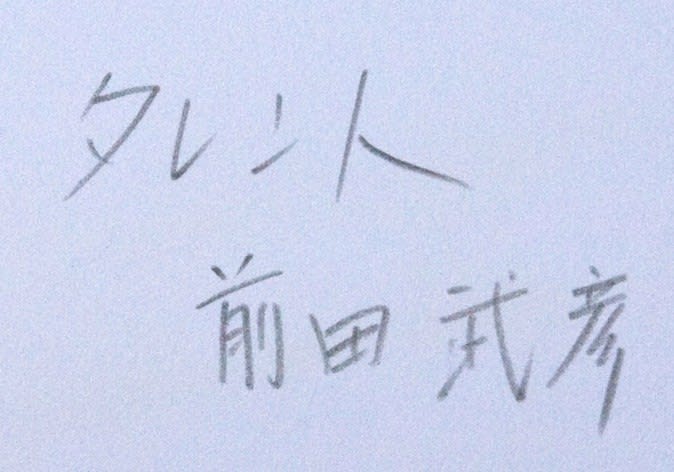 タレント
前田武彦